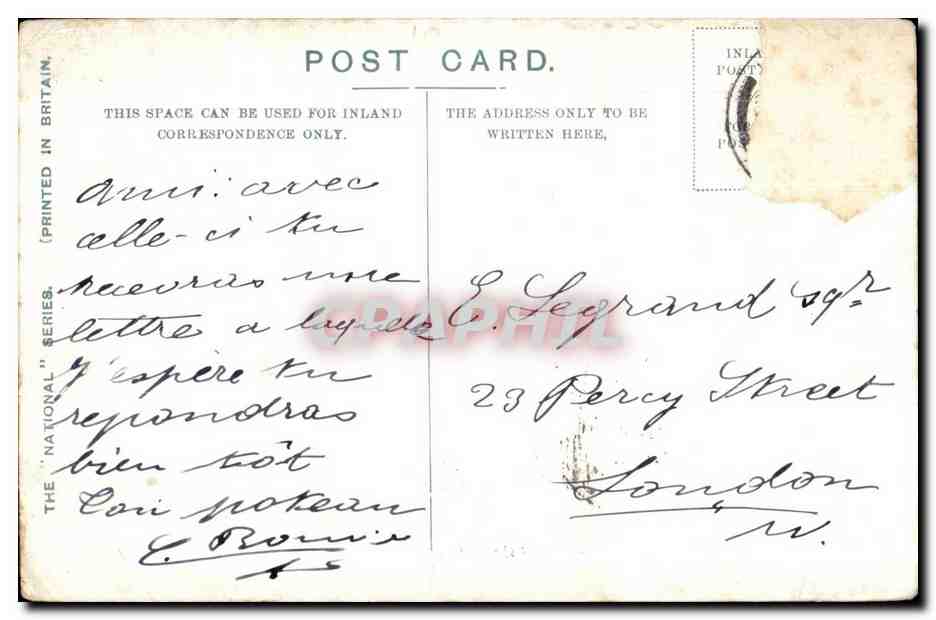 POST CARD.
THIS SPACE CAN BE USED FOR INLAND
CORRESPONDENCE ONLY.
THE ADDRESS ONLY TO BE
WRITTEN HERE,
INLA
POST
POS
THE "NATIONAL" SERIES. (PRINTED IN BRITAIN.
ami: avec
celle-ci tu
recevras une
lettre a laquelle
J'espère tu
repondras
bien tôt
Ton
E. Legrand sqr
23 Percy Street
London
W.
CPAPHIL